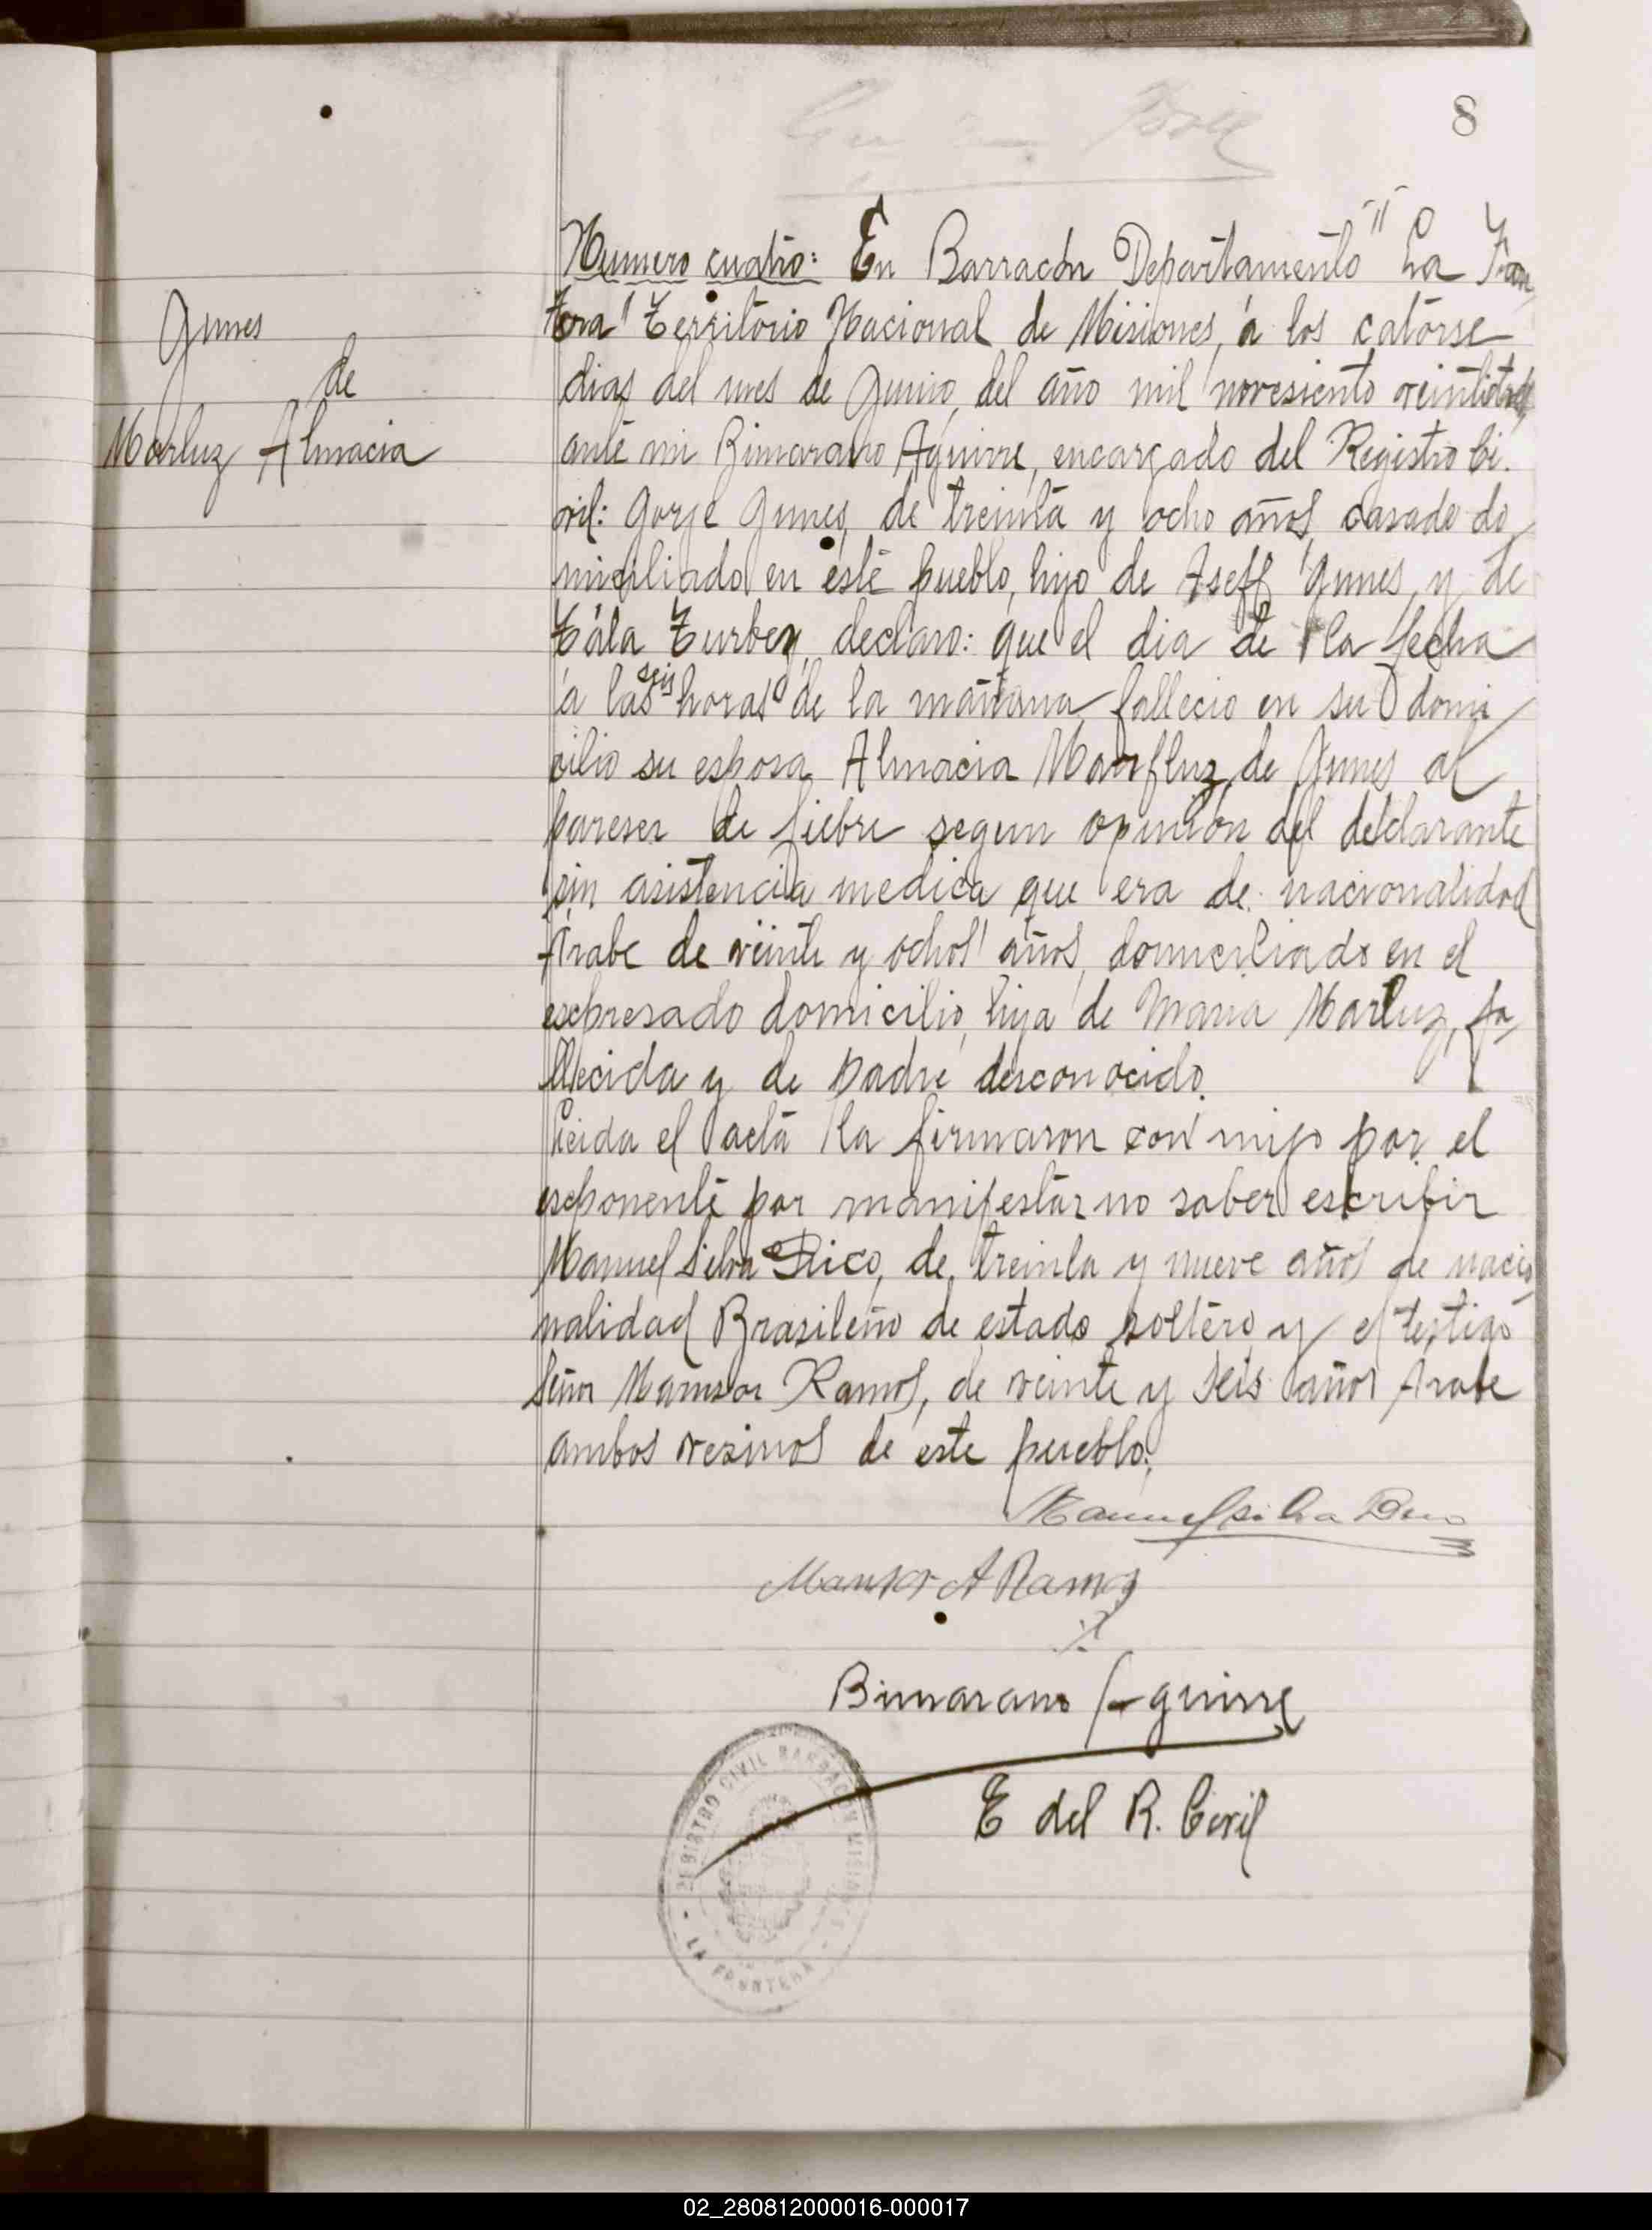 8
Numero cuatro: En Barracón Departamento "La Fron
tera" Territorio Nacional de Misiones, á los catorse
dias del mes de Junio, del año mil novesiento
ante mi Bimarano Aguirre, encargado del Registro Ci
vil: Gorje Junes, de treinta y ocho años, casado do
miciliado en este pueblo, hijo de Aseff Junes, y de
declaro: que el dia de la fecha
á las seis horas de la mañana, fallecio en su domi
cilio su esposa Almacia Marfluz de Junes al
pareser de fiebre segun opinión del declarante
sin asistencia medica que era de nacionalidad
Arabe de veinte y ochos años, domiciliado en el
esepresado domicilio, hija de Maria Marluz, fa
llecida y de padre desconocido.
Leida el acta la firmaron con migo por el
eseponente por manifestar no saber escribir
Manuel Silva Rico, de treinta y nueve años de nacio
nalidad Brasileño de estado soltero y el testigo
Señor Mansor Ramos, de veinte y seis años Arabe
ambos vesinos de este pueblo.
Junes
de
Marluz Almacia
Manuel Silva
Mansor A Ramos
Bimarano Aguirre
E del R. Civil
REGISTRO CIVIL BARRACON MISIONES
LA FRONTERA
02_280812000016-000017